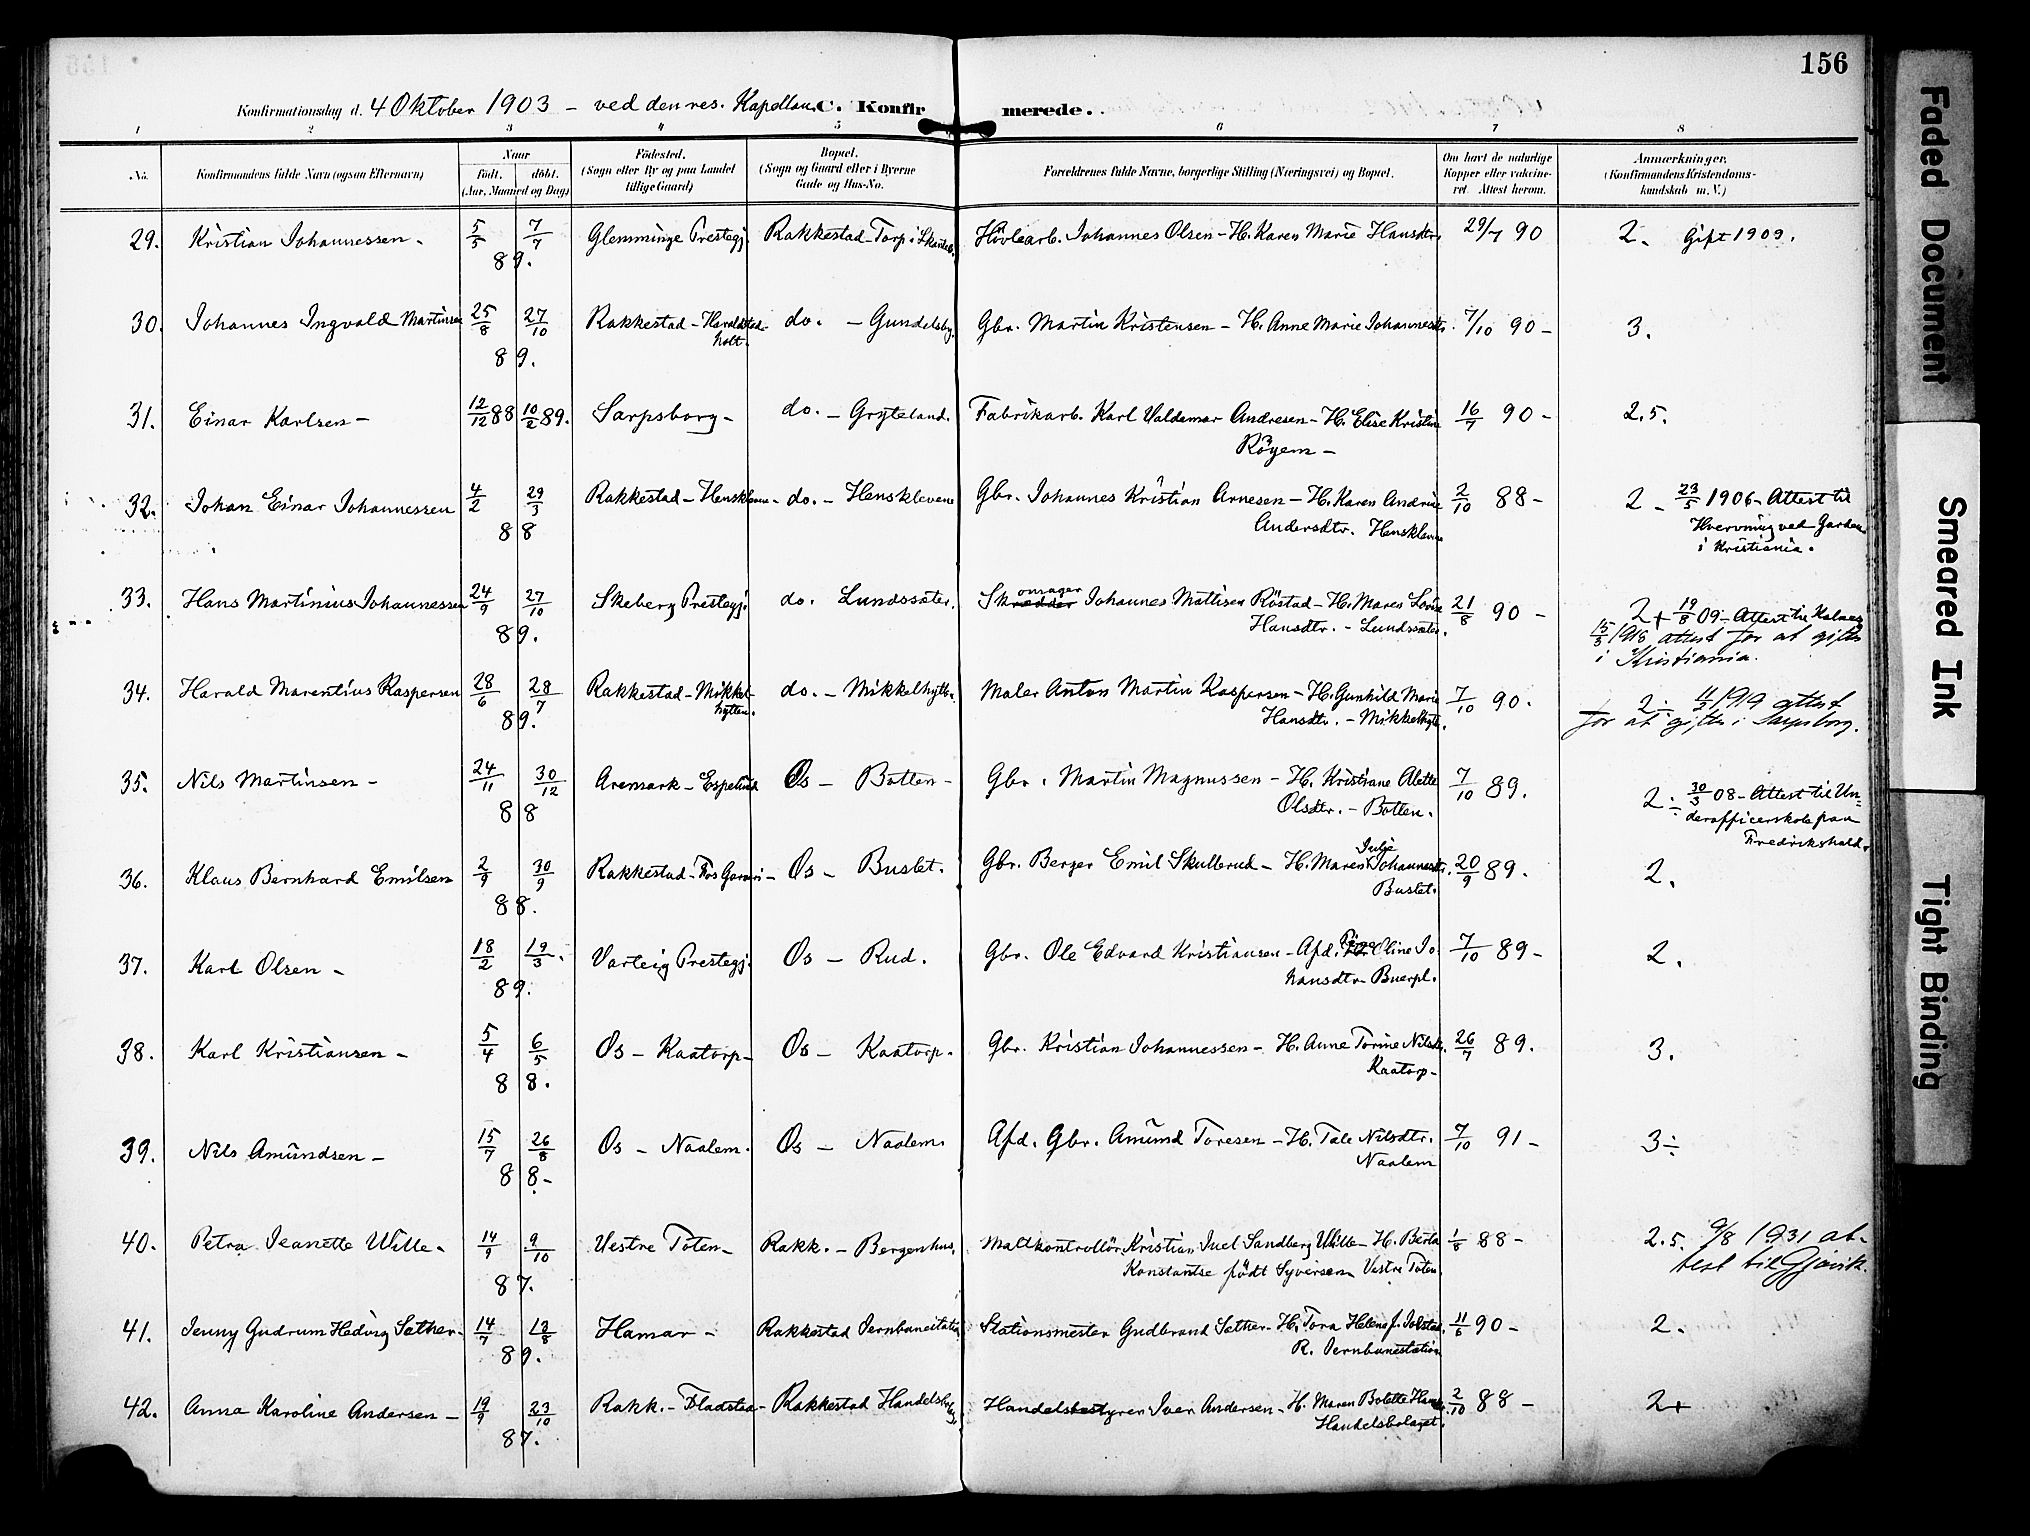 156
Konfirmationsdag d. 4 Oktober 1903 – ved den res. Kapellan. C. Konfirmerede.
1 2 3 4 5 6 7 8
No. Konfirmandens fulde Navn (ogsaa Efternavn) Naar Födt. döbt. (Aar, Maaned og Dag) Födested. (Sogn eller By og paa Landet tillige Gaard) Bopæl. (Sogn og Gaard eller i Byerne Gade og Hus-No. Forældrenes fulde Navne, borgerlige Stilling (Næringsvei) og Bopæl. Om havt de naturlige Kopper eller vakcineret. Attest herom. Anmærkninger. (Konfirmandens Kristendomskundskab m. V.)
29. Kristian Johannessen – 5/5 7/7 89. Glemminge Prestegj. Rakkestad – Torp i Høvlearb. Johannes Olsen – H. Karen Marie Hansdtr. 29/7 90 2. Gift 1909.
30. Johannes Ingvald Martinsen 25/8 27/10 89. Rakkestad – Haraldstadholt. do. – Gundelsby. Gbr. Martin Kristensen – H. Anne Marie Johannesdtr. 7/10 90 – 3.
31. Einar Karlsen – 12/12 88 10/2 89. Sarpsborg – do. – Gryteland. Fabrikarb. Karl Valdemar Andresen – H. Elise Kristine
Röyem –
16/7 90 – 2.5.
32. Johan Einar Johannessen 4/2 29/3 88 Rakkestad – Hensklevene – do. – Hensklevene Gbr. Johannes Kristian Arnesen – H. Karen Andrine
Andersdtr. Hensklevene
2/10 88 – 2 – 23/5 1906 – Attest til
Hvervning ved Garden
i Kristiania.
33. Hans Martinius Johannessen 24/9 27/10 89. Skeberg Prestegj. do. Lundssæter. Skrædder omager Johannes Mattisen Röstad – H. Maren Lovise
Hansdtr. – Lundssæter.
21/8 90 – 2+ 19/8 09 – Attest til
15/3 1918 attest for at giftes
i Kristiania.
34. Harald Marentius Kaspersen 28/6 28/7 89. Rakkestad – Mikkelhytten. do. – Mikkelhytten. Maler Anton Martin Kaspersen – H. Gunhild Marie
Hansdtr. – Mikkelhytt.
7/10 90. 2 ÷ 1919 attest
for at giftes i Sarpsborg.
35. Nils Martinsen – 24/11 30/12 88 Aremark – Espelund Os – Botten – Gbr. Martin Magnussen – H. Kristiane Alette
Olsdtr. – Botten.
7/10 89. 2 ÷ 30/3 08 – Attest til Underofficerskole paa
Fredrikshald.
36. Klaus Bernhard Emilsen 2/9 30/9 88. Rakkestad – Os – Buslet. Gbr. Berger Emil Skullerud – H. Maren Julie Johannesdtr.
Buslet.
20/9 89. 2.
37. Karl Olsen – 18/2 19/3. 89. Varteig Prestegj. Os – Rud. Gbr. Ole Edvard Kristiansen – Afd. Oline Johansdtr – Buerpl.
7/10 89 – 2.
38. Karl Kristiansen – 5/4 6/5 88. Os – Kaatorp – Os – Kaatorp. Gbr. Kristian Johannessen – H. Anne Torine Nilsdtr.
Kaatorp –
26/7 89. 3.
39. Nils Amundsen – 15/7 26/8 88 – Os – Naalem. Os – Naalem. Afd. Gbr. Amund Toresen – H. Tale Nilsdtr.
Naalem
7/10 91 – 3÷
40. Petra Jeanette Wille. 14/9 9/10 87. Vestre Toten – Rakk. – Bergenhus. Maltkontrollör Kristian Juel Sandberg Wille – H. Berta
Konstantse födt Syversen Vestre Toten.
1/8 88 – 2.5. 9/8 1931 attest til Gjøvik.
41. Jenny Gudrum Hedvig Sether. 14/7 18/8 89. Hamar – Rakkestad Jernbanestation Stationsmester Gudbrand Sether – H. Tora Helene f. Jolstad.
R. Jernbanestation
11/6 90 – 2.
42. Anna Karoline Andersen – 19/9 23/10 87. Rakk. – Fladstad – Rakkestad Handelsbolag Handelsbestyrer Iver Andersen – H. Maren Bolette
Handelsbolaget.
2/10 88 – 2+
Faded Document
Smeared Ink
Tight Binding